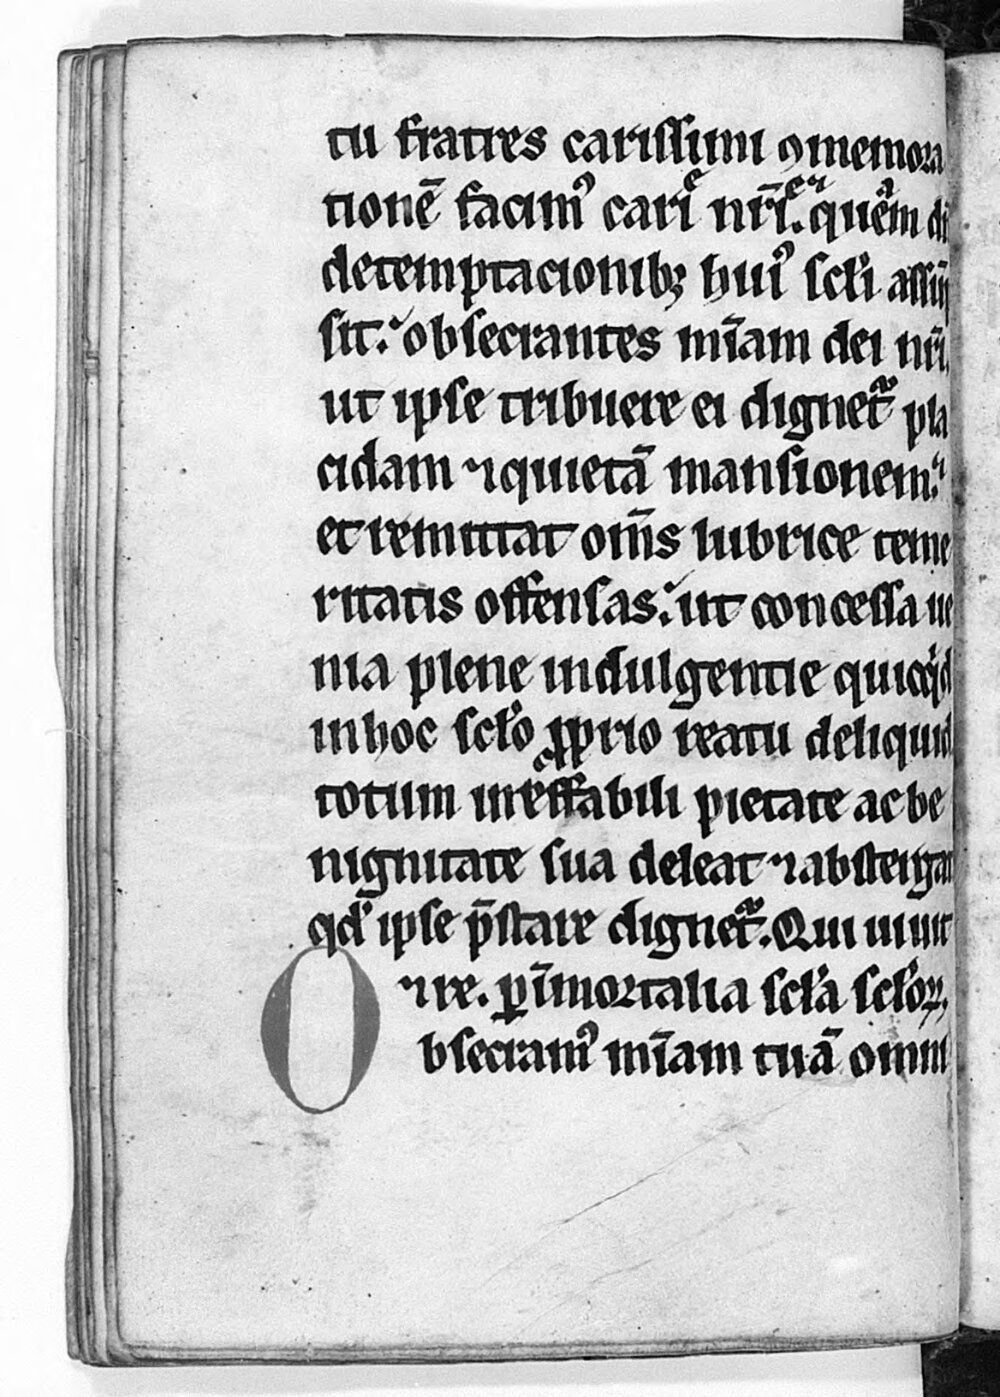 tu fratres carissimi ꝯmemora
tionē facimꝰ cari nr̄i. quem dn̄s
de temptacionibꝫ huiꝰ scl̄i assūp
sit. obsecrantes mīam dei nr̄i.
ut ipse tribuere ei dignet̃ pla
cidam ⁊ quietā mansionem.
et remittat om̄s lubrice teme
ritatis offensas. ut concessa ue
nia plene indulgentie quicq̇d
in hoc scl̄o ꝓprio reatu deliquid
totum ineffabili pietate ac be
nignitate sua deleat ⁊ abstergat
qd̄ ipse p̄stare dignet̃. Qui uiuit
⁊ re. ꝑ īmortalia scl̄a scl̄oꝝ.
Obsecramꝰ mīam tuā omni